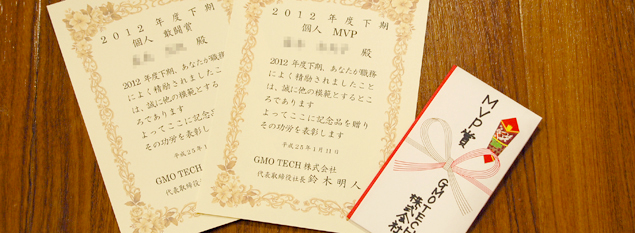 2012年度下期
個人 敢闘賞
殿
2012年度下期、あなたが職務
によく精励されましたこと
は、誠に他の模範とする
ろであります
よってここに記念
その功労を表彰し
平成25年1
GMO TECH 株
代表取締役
2012年度下期
個人 MVP
殿
2012年度下期、あなたが職務
によく精励されましたこと
は、誠に他の模範とするとこ
ろであります
よってここに記念品を贈り
その功労を表彰します
平成25年1月11日
GMO TECH 株式会社
代表取締役社長 鈴木明人
MVP賞
GMO TECH
株式会社